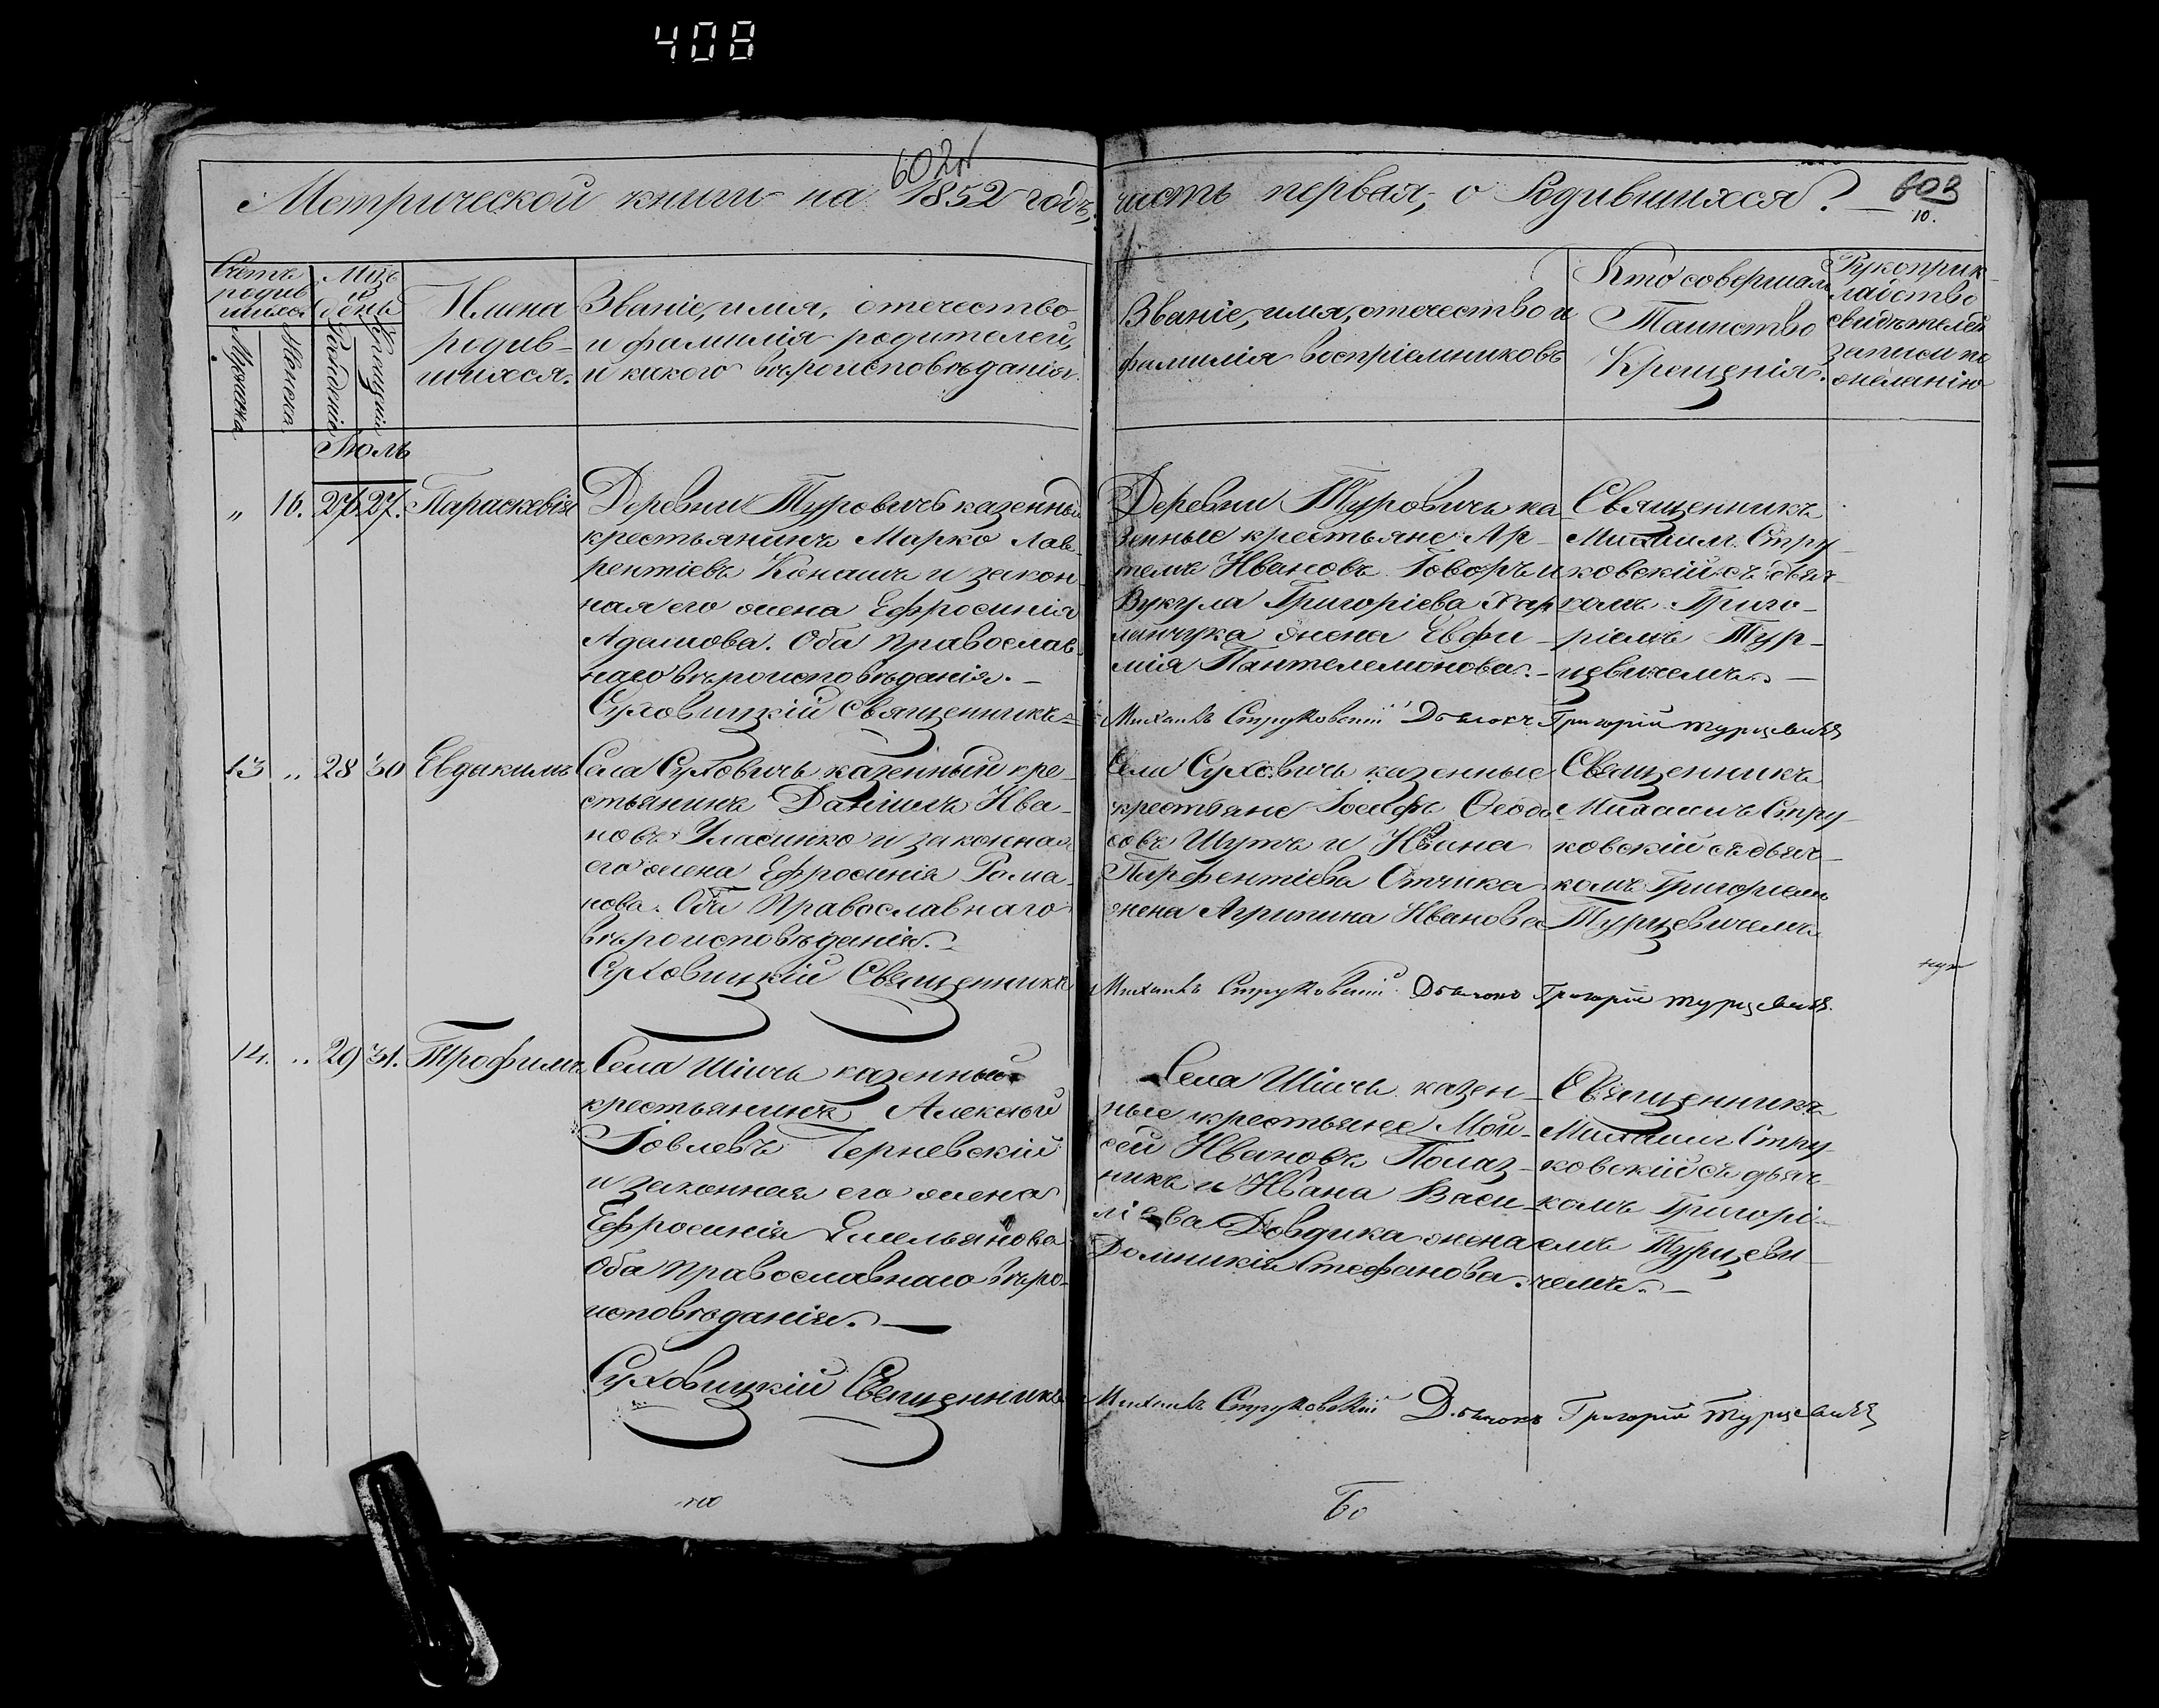 408
602
Метрической книги на 1852 годъ,
часть первая, о Родившихся.
603
10.
Счетъ родив
шихся
Мужеска
Женска
Мцъ
и
день
Рожденія
Крещенія
Имена
родив-
шихся.
Званіе, имя, отечество
и фамилія родителей,
и какого вѣроисповѣданія.
Званіе, имя, отечество и
фамилія воспріемниковъ
Кто совершалъ
Таинство
Крещенія.
Рукоприк
лайство
свидѣтелей
записи по
желанію
Іюль
„ 16. 27. Параскевія
Деревни Туровичъ казенный
крестьянинъ Марко Лав-
рентіевъ Конашъ и закон-
ная его жена Ефросинія
Адамова. Оба Православ-
наго вѣроисповѣданія.
Суховицкій Священникъ
Деревни Туровичъ ка-
зенные крестьяне Ар-
темъ Ивановъ Говоръ и
Вукула Григоріева
жена Евфи-
мія Пантелемонова.
Священникъ
Михаилъ Стру-
ковскій съ дьяч-
комъ Григо-
ріемъ Тур-
цевичемъ.
Михаилъ Струковскій Дьячокъ Григорій Турцевичъ
13 „ 28 30 Евдокимъ
Села Суховичъ казенный кре-
стьянинъ Даніилъ Ива-
новъ и законная
его жена Ефросинія Рома-
нова. Оба Православнаго
вѣроисповѣданія.
Суховицкій Священникъ
Села Суховичъ казенные
крестьяне Іосифъ Ѳеодо-
совъ Шутъ и Ивана
Парфентіева Отчика
жена Агрипина Иванова
Священникъ
Михаилъ Стру-
ковскій съ дьяч-
комъ Григоріемъ
Турцевичемъ
Михаилъ Струковскій Дьячокъ Григорій Турцевичъ.
14. „ 29 31. Трофимъ
Села Шіичъ казенный
крестьянинъ Алексѣй
Іовлевъ Черневскій
и законная его жена
Ефросинія Емельянова
Оба Православнаго вѣро-
исповѣданія.
Суховицкій Священникъ
Села Шіичъ казен-
ные крестьяне Мои-
сей Ивановъ Полаз-
никъ и Ивана Васи-
ліева Довдика жена
Домникія Стефанова.
Священникъ
Михаилъ Стру-
ковскій съ дьяч-
комъ Григорі-
емъ Турцеви-
чемъ.
Михаилъ Струковскій Дьячокъ Григорій Турцевичъ